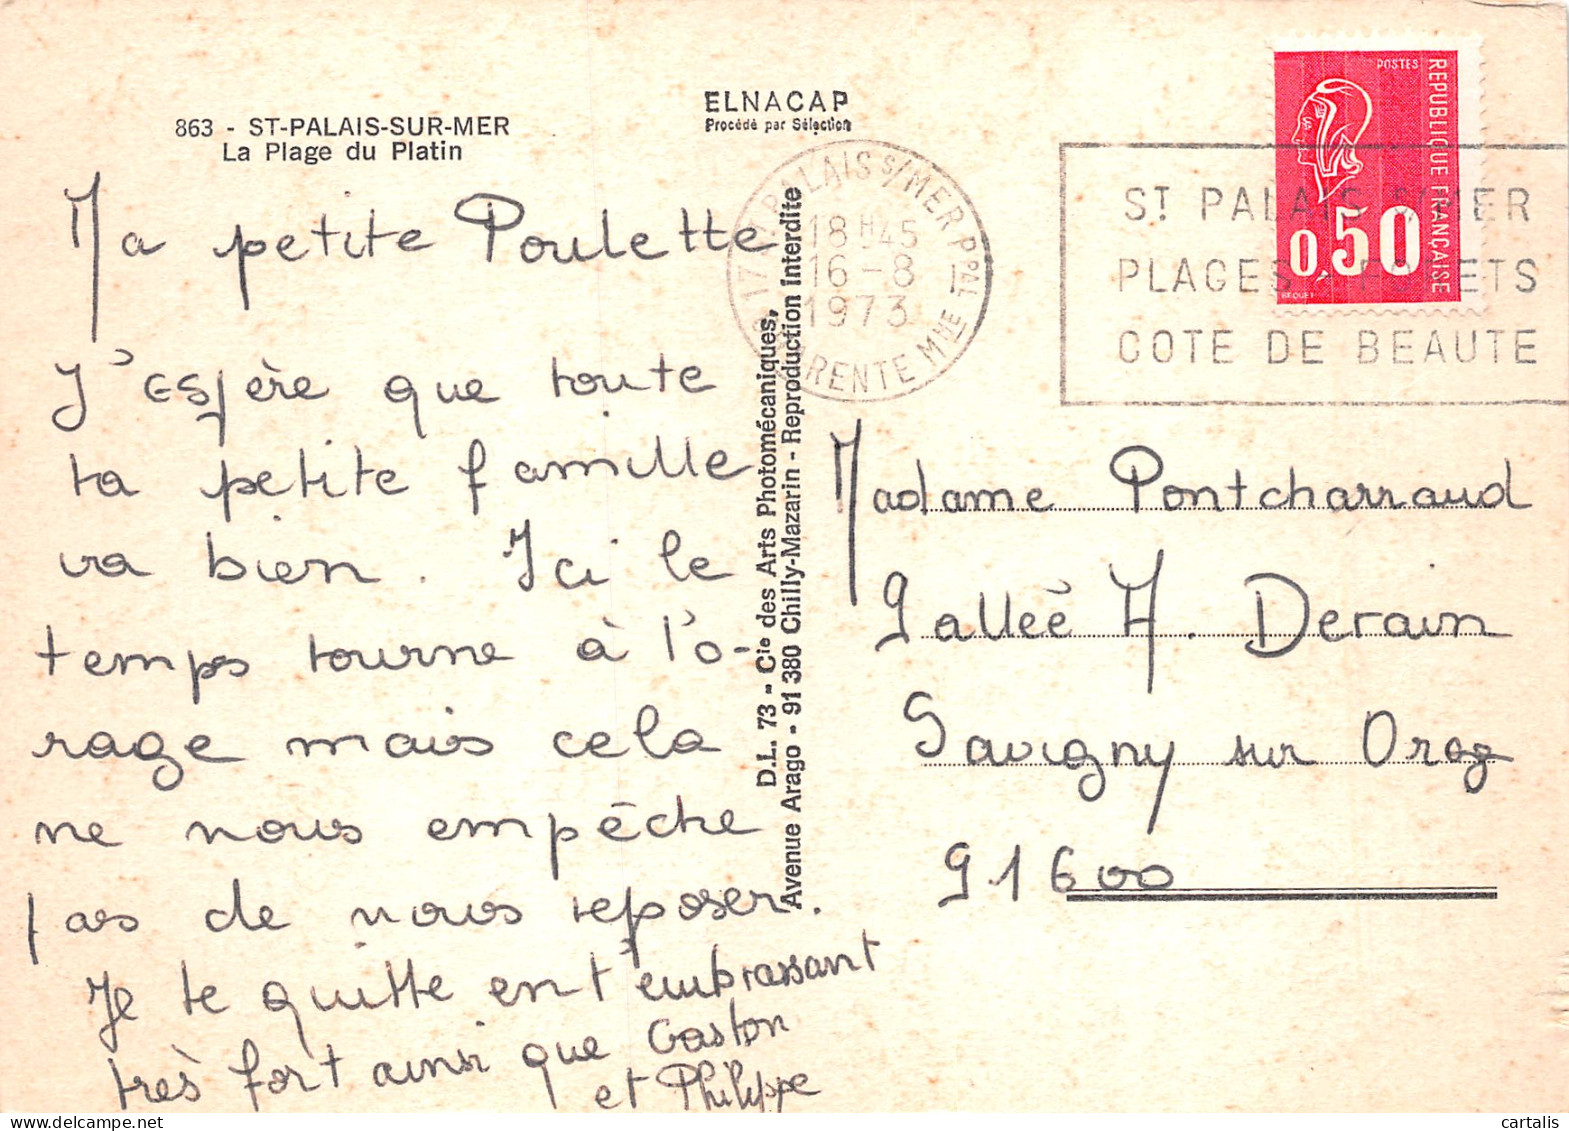 863 - ST-PALAIS-SUR-MER
La Plage du Platin
ELNACAP
Procédé par Sélection
POSTES
REPUBLIQUE FRANÇAISE
0,50
BEQUET
17 ST PALAIS S/MER PPAL
18H45
16-8
1973
CHARENTE MME
ST PALAIS S/MER
PLAGES FORETS
COTE DE BEAUTE
Ma petite Poulette
J'espère que toute
ta petite famille
va bien. Ici le
temps tourne à l'o-
rage mais cela
ne nous empêche
pas de nous reposer.
Je te quitte en t'embrassant
très fort ainsi que Gaston
et Philippe
D.L. 73 - Cie des Arts Photomécaniques,
Avenue Arago - 91 380 Chilly-Mazarin - Reproduction Interdite
Madame Pontcharraud
9 allée A. Derain
Savigny sur Orge
91600
cartalis